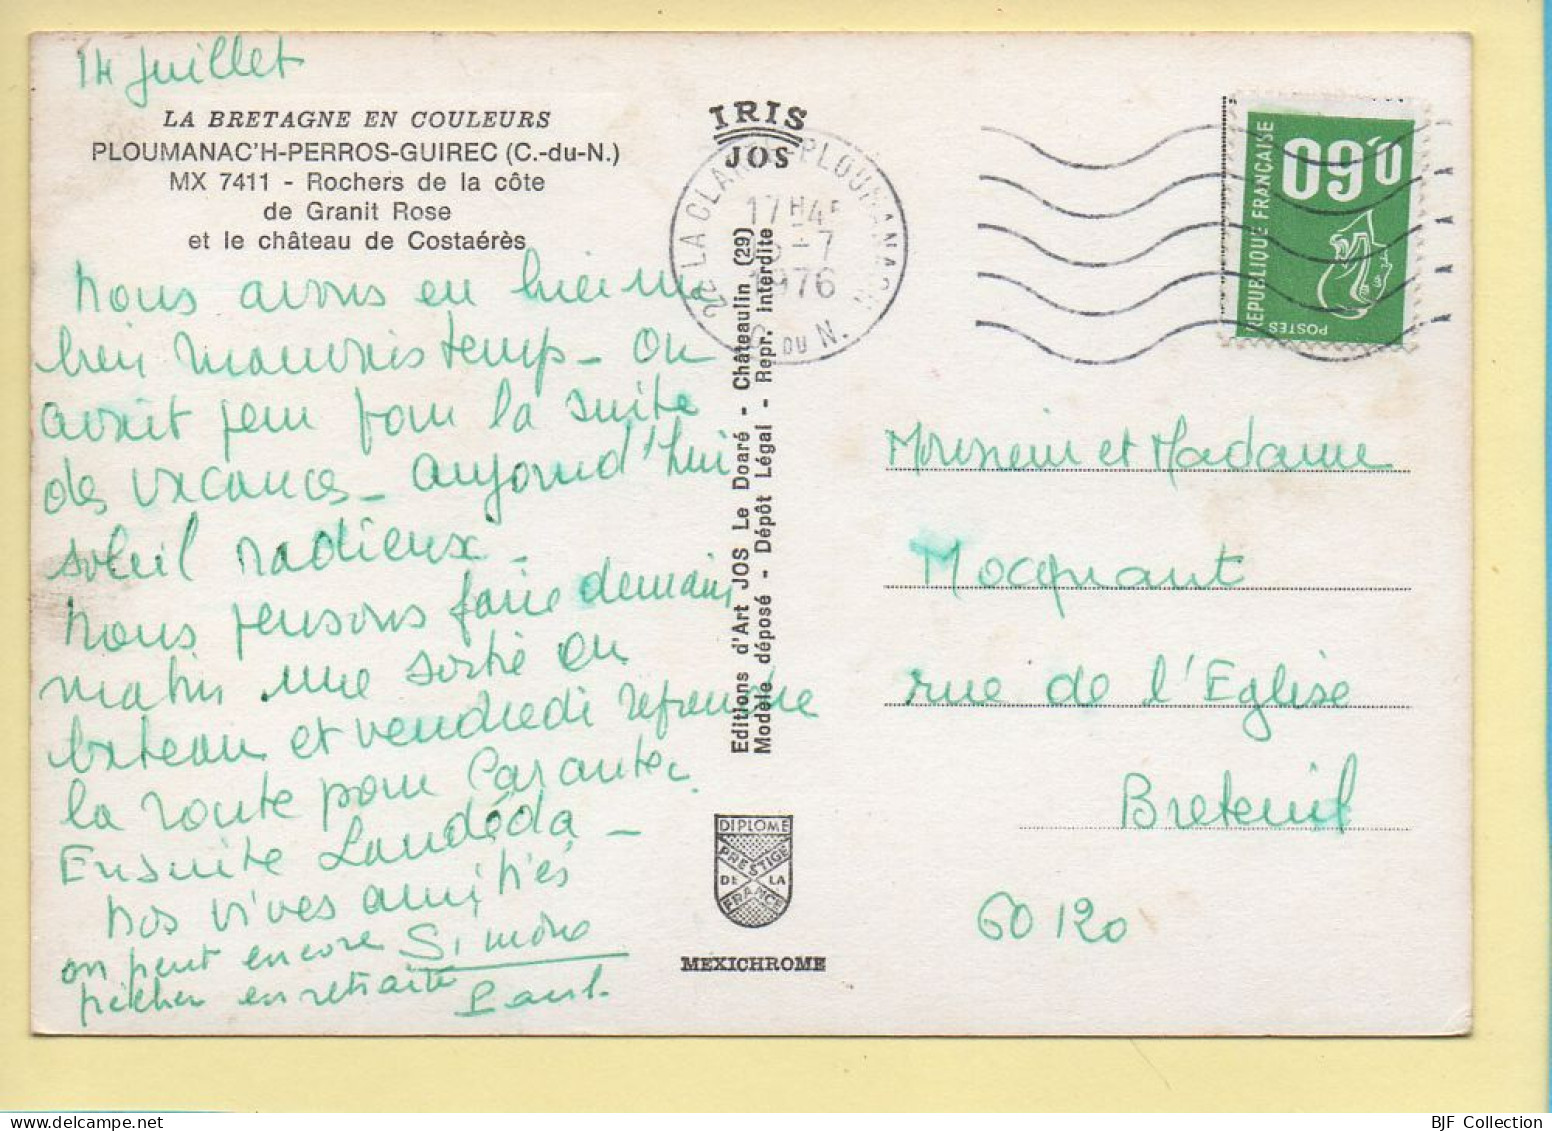 14 Juillet
LA BRETAGNE EN COULEURS
PLOUMANAC'H-PERROS-GUIREC (C.-du-N.)
MX 7411 - Rochers de la côte
de Granit Rose
et le château de Costaérès
Nous avons eu hier un
bien mauvais temps - On
avait peur pour la suite
des vacances - aujourd'hui
soleil radieux -
Nous pensons faire demain
matin une sortie en
bateau et vendredi reprendre
la route pour Carantec
Ensuite Landéda -
Nos vives amitiés
on peut encore Simone
pêcher en retraite Paul.
IRIS
JOS
22 LA CLARTÉ-PLOUMANACH
17H45
-7
1976
C. DU N.
Editions d'Art JOS Le Doaré - Châteaulin (29)
Modèle déposé - Dépôt Légal - Repr. Interdite
DIPLOME
PRESTIGE
DE LA
FRANCE
MEXICHROME
0,60
REPUBLIQUE FRANÇAISE
POSTES
Monsieur et Madame
Mocquant
rue de l'Eglise
Breteuil
60120
BJF Collection